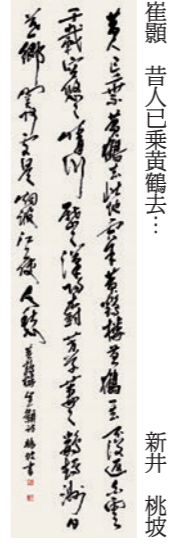 崔顥　昔人已乗黄鶴去…　新井　桃坡
昔人已乗黄鶴去此地空余黄鶴樓黄鶴一去不復返白雲
千載空悠々晴川歴々漢陽樹芳草萋々鸚鵡洲日
暮鄉関何処是烟波江上使人愁 黄鶴樓 崔顥詩 桃坡書